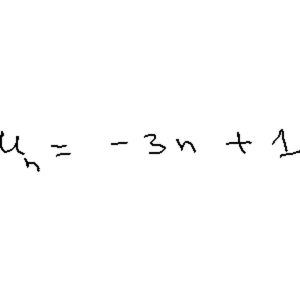 uₙ = -3n + 1